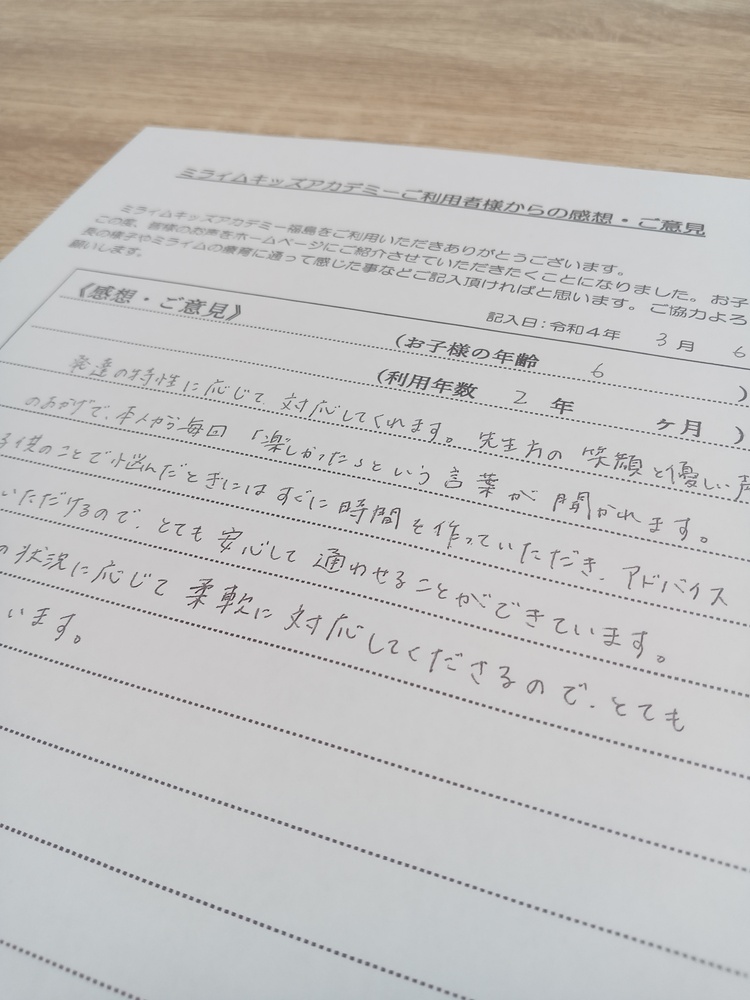 ミライムキッズアカデミーご利用者様からの感想・ご意見
ミライムキッズアカデミー福島をご利用いただきありがとうございます。
この度、皆様のお声をホームページにご紹介させていただきたくことになりました。お子
長の様子やミライムの療育に通って感じた事などご記入頂ければと思います。ご協力よろ
願いします。
記入日：令和４年 3 月 6
《感想・ご意見》
（お子様の年齢 6 ）
（利用年数 2 年 ヶ月 ）
発達の特性に応じて対応してくれます。先生方の笑顔と優しい声
のおかげで、本人から毎回「楽しかった」という言葉が聞かれます。
子供のことで悩んだときにはすぐに時間を作っていただき、アドバイス
いただけるので、とても安心して通わせることができています。
の状況に応じて柔軟に対応してくださるので、とても
います。